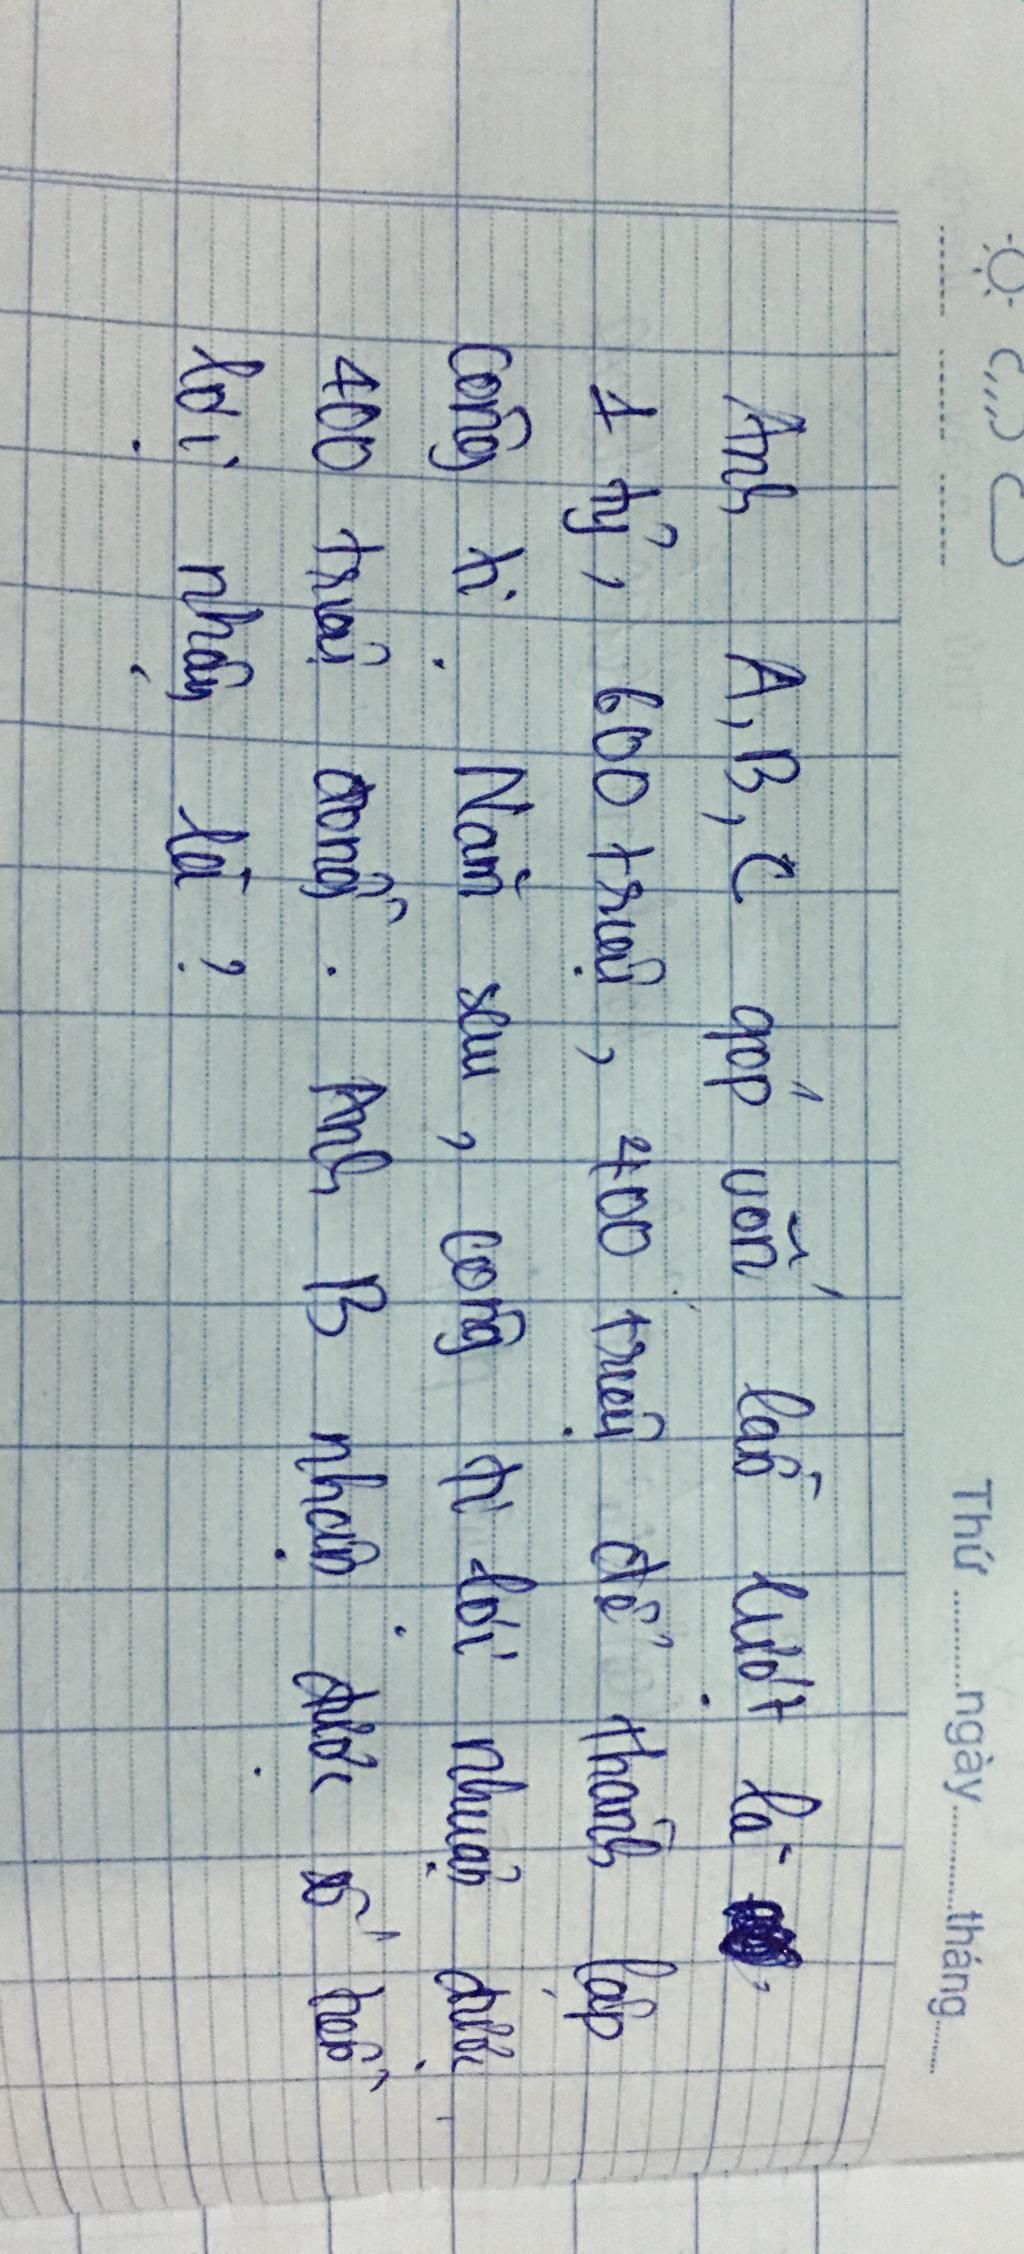 Thứ ..........ngày..........tháng......
Anh A, B, C góp vốn lần lượt là
1 tỷ, 600 triệu, 400 triệu để thành lập
công ti. Năm sau, công ti lời nhuận được
400 triệu đồng. Anh B nhận được số tiền
lời nhuận là?